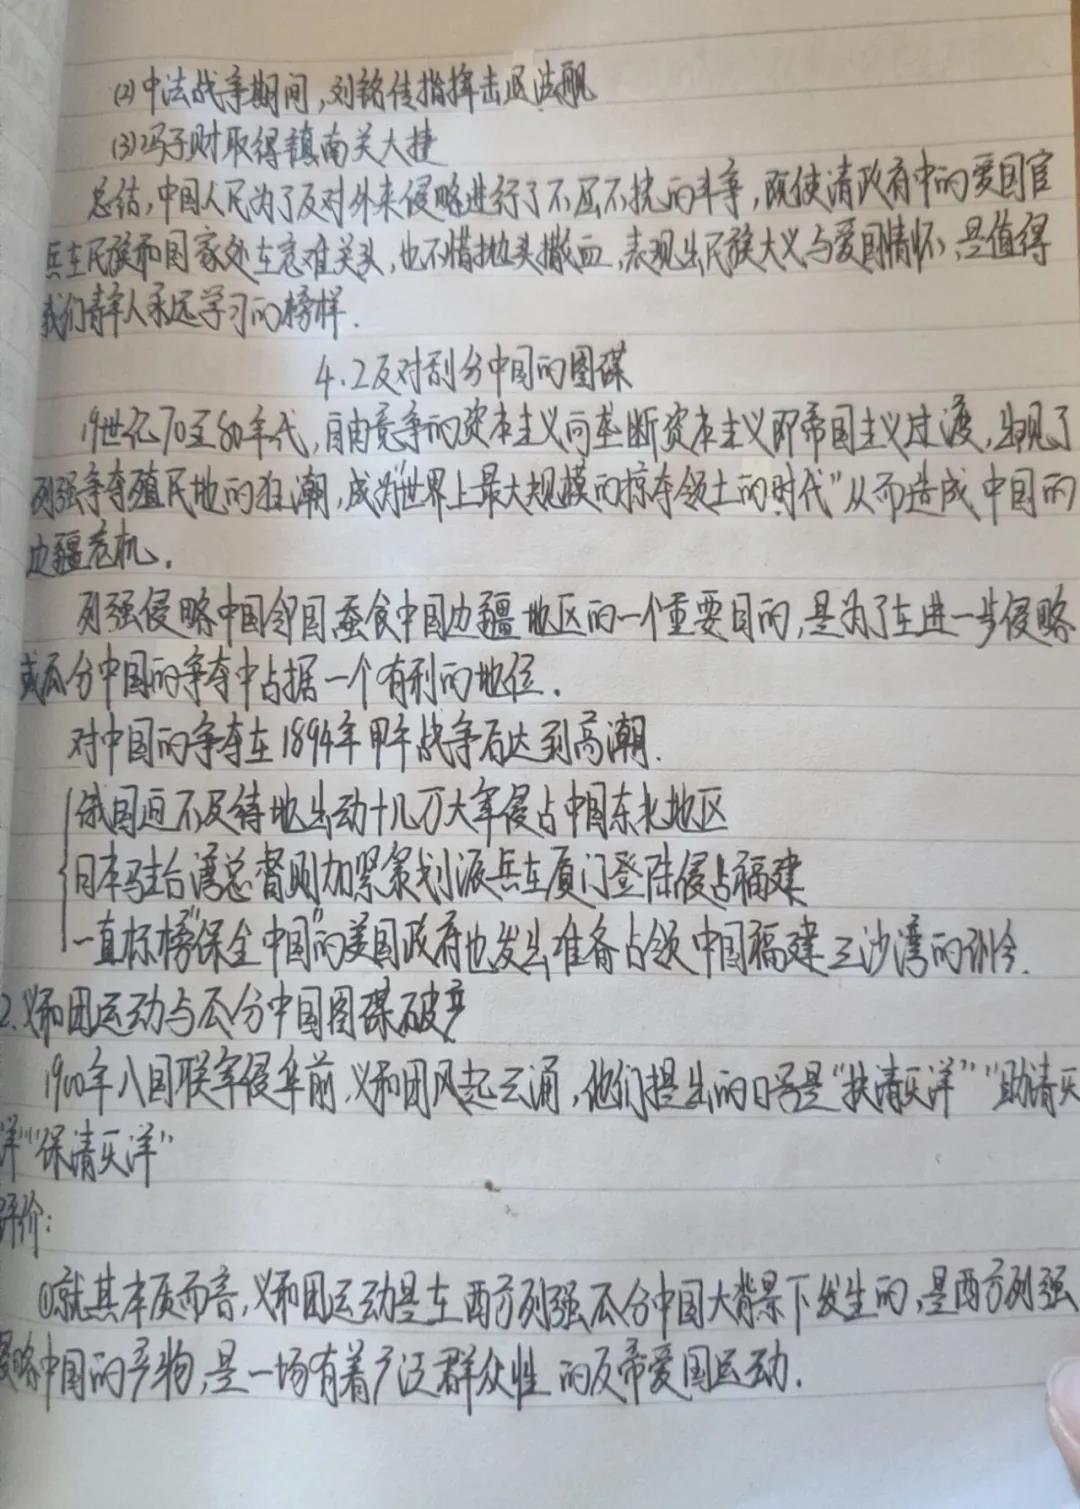 (2)中法战争期间,刘铭传指挥击退法舰
(3)冯子财取得镇南关大捷
总结,中国人民为了反对外来侵略进行了不屈不挠的斗争,既使清政府中的爱国官
兵在民族和国家处在危难关头,也不惜抛头撒血,表现出民族大义与爱国情怀,是值得
我们青年人永远学习的榜样.
4.2反对刮分中国的图谋
19世纪70至80年代,自由竞争的资本主义向垄断资本主义即帝国主义过渡,出现了
列强争夺殖民地的狂潮,成为“世界上最大规模的掠夺领土的时代”从而造成中国的
边疆危机.
列强侵略中国邻国蚕食中国边疆地区的一个重要目的,是为了在进一步侵略
或瓜分中国的争夺中占据一个有利的地位.
对中国的争夺在1894年甲午战争后达到高潮.
俄国迫不及待地出动十几万大军侵占中国东北地区
日本驻台湾总督则加紧策划派兵在厦门登陆侵占福建
一直标榜“保全中国”的美国政府也发出准备占领中国福建三沙湾的训令.
2.义和团运动与瓜分中国图谋破产
1900年八国联军侵华前,义和团风起云涌,他们提出的口号是“扶清灭洋”“助清灭
洋”“保清灭洋”
评价:
①就其本质而言,义和团运动是在西方列强瓜分中国大背景下发生的,是西方列强
侵略中国的产物,是一场有着广泛群众性的反帝爱国运动.